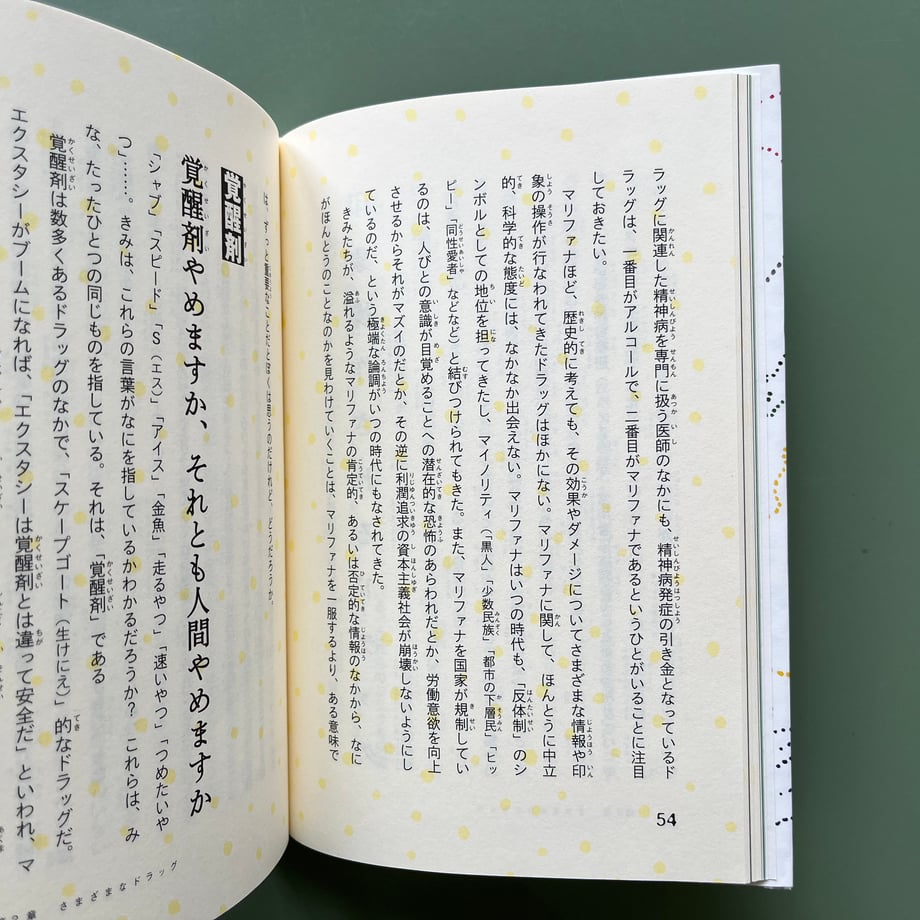 ラッグに関連した精神病を専門に扱う医師のなかにも、精神病発症の引き金となっているド
ラッグは、一番目がアルコールで、二番目がマリファナであるというひとがいることに注目
しておきたい。
マリファナほど、歴史的に考えても、その効果やダメージについてさまざまな情報や印
象の操作が行なわれてきたドラッグはほかにない。マリファナに関して、ほんとうに中立
的、科学的な態度には、なかなか出会えない。マリファナはいつの時代も、「反体制」のシ
ンボルとしての地位を担ってきたし、マイノリティ（「黒人」「少数民族」「都市の下層民」「ヒッ
ピー」「同性愛者」などなど）と結びつけられてもきた。また、マリファナを国家が規制してい
るのは、人びとの意識が目覚めることへの潜在的な恐怖のあらわれだとか、労働意欲を向上
させるからそれがマズイのだとか、その逆に利潤追求の資本主義社会が崩壊しないようにし
ているのだ、という極端な論調がいつの時代にもなされてきた。
きみたちが、溢れるようなマリファナの肯定的、あるいは否定的な情報のなかから、なに
がほんとうのことなのかを見わけていくことは、マリファナを一服するより、ある意味で
54
は、ずっと重要なことだとぼくは思うのだけれど、どうだろうか。
覚醒剤
覚醒剤やめますか、それとも人間やめますか
「シャブ」「スピード」「S（エス）」「アイス」「金魚」「走るやつ」「速いやつ」「つめたいや
つ」……。きみは、これらの言葉がなにを指しているかわかるだろうか？ これらは、み
な、たったひとつの同じものを指している。それは、「覚醒剤」である
覚醒剤は数多くあるドラッグのなかで、「スケープゴート（生けにえ）」的なドラッグだ。
エクスタシーがブームになれば、「エクスタシーは覚醒剤とは違って安全だ」といわれ、マ
章 さまざまなドラッグ